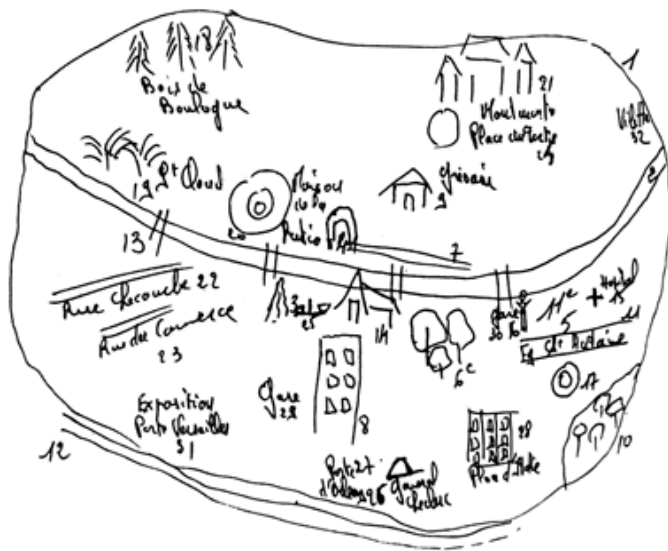 18
Bois de
Boulogne
1
21
Montmartre
Place du Tertre
Villette
32
19 St Cloud
Maison
de la
Radio
20
9
7
2
13
Rue Lecourbe 22
Rue du Commerce
23
3
25
14
6e
Gare
30
16
11e
5
Hôpital
11
17
Gare
29
8
Exposition
Porte Versailles
31
12
Porte 27
d'Orléans 26
General
Leclerc
28
Place d'Italie
10